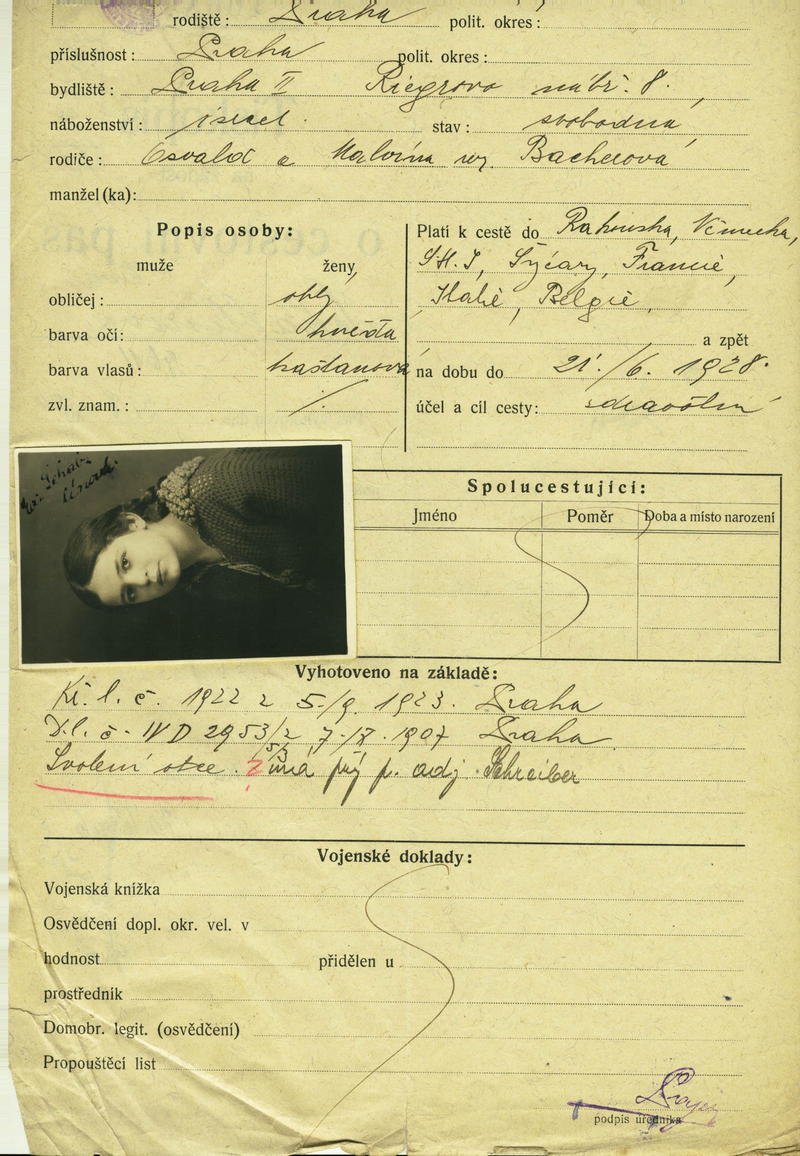 rodiště: Praha polit. okres:
příslušnost: Praha polit. okres:
bydliště: Praha II Riegrovo nábř. 8.
náboženství: israel. stav: svobodná
rodiče: Osvald a Malvína roz. Bacherová
manžel (ka):
Popis osoby:
muže ženy
obličej: oblý
barva očí: hnědá
barva vlasů: kaštanová
zvl. znam.: /.
Platí k cestě do Rakouska, Německa,
S.H.S, Švýcary, Francie,
Italie, Belgie,
a zpět
na dobu do 21./6. 1928.
účel a cíl cesty: zdravotní
Spolucestující:
Jméno Poměr Doba a místo narození
Vyhotoveno na základě:
Kř. l. č. 1922 z 5./9. 1923. Praha
D.l. č. IV D 2953/2 7./8. 1907 Praha
Svolení otce. p. adj. Schreiber
Vojenské doklady:
Vojenská knížka
Osvědčení dopl. okr. vel. v
hodnost přidělen u
prostředník
Domobr. legit. (osvědčení)
Propouštěcí list
podpis úředníka